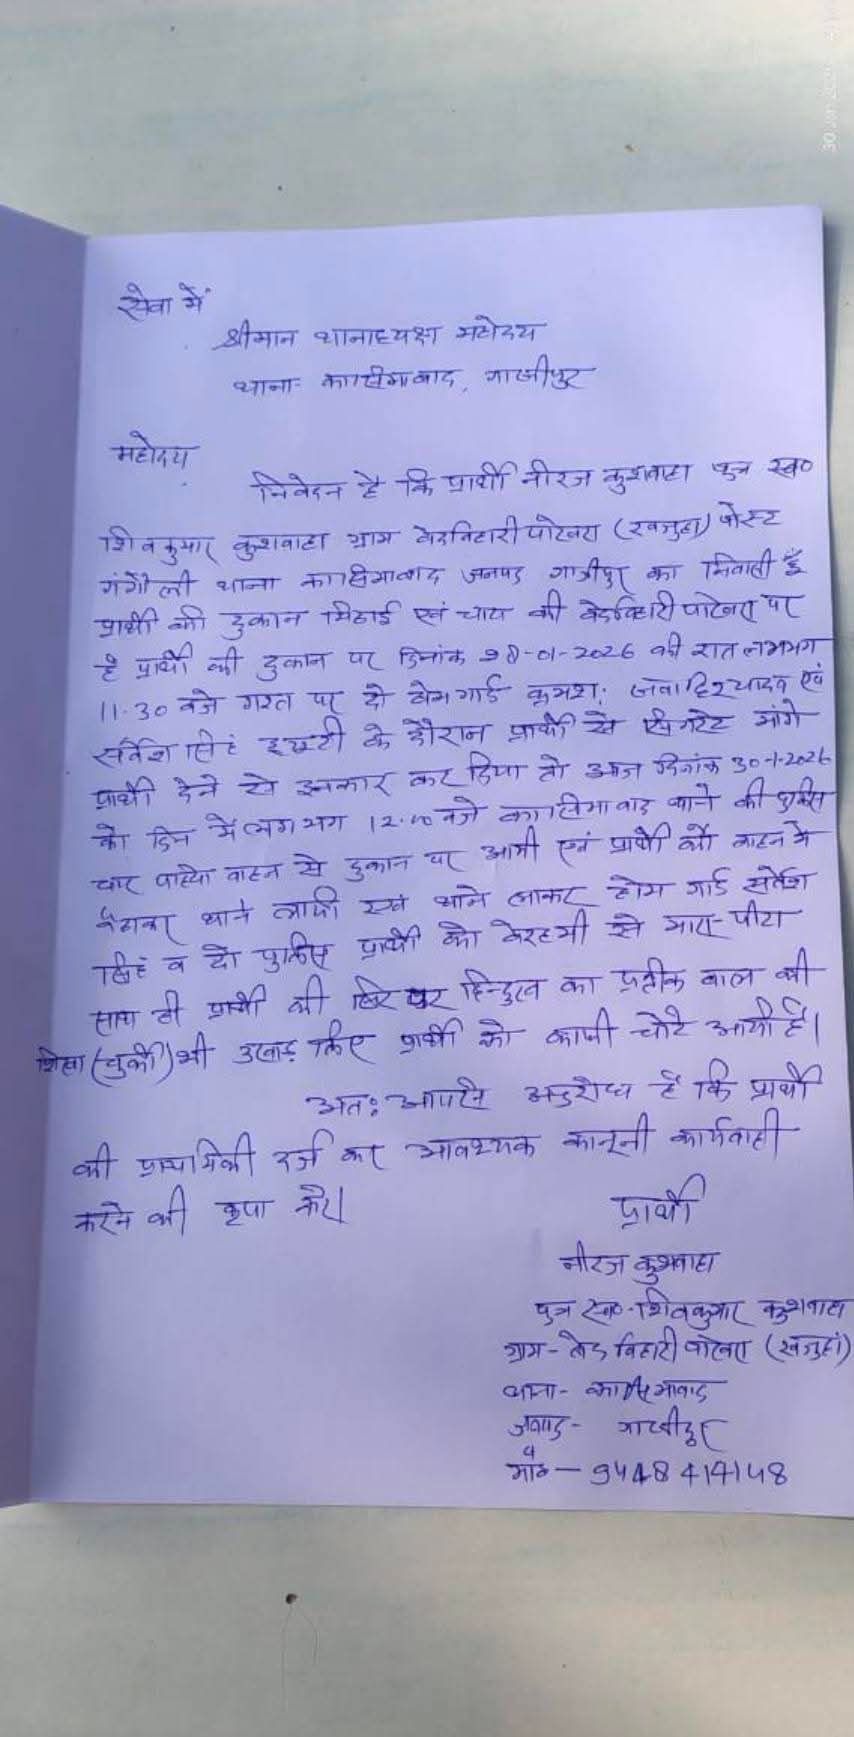 सेवा में
श्रीमान थानाध्यक्ष महोदय
थानाः कासिमाबाद, गाजीपुर
महोदय
निवेदन है कि प्रार्थी नीरज कुशवाहा पुत्र स्व०
शिवकुमार कुशवाहा ग्राम वेदविहारी पोखरा (खजुहा) पोस्ट
गंगौली थाना कासिमाबाद जनपद गाजीपुर का निवासी हूँ
प्रार्थी की दुकान मिठाई एवं चाय की वेदविहारी पोखरा पर
है प्रार्थी की दुकान पर दिनांक -01-2026 की रात लगभग
11.30 बजे गस्त पर दो होमगार्ड क्रमशः जवाहिर यादव एवं
सर्वेश सिंह ड्यूटी के दौरान प्रार्थी से सिगरेट मांगे
प्रार्थी देने से इनकार कर दिया तो आज दिनांक 30-1-2026
को दिन में लगभग 12.10 बजे कासिमाबाद थाने की पुलिस
चार पहिया वाहन से दुकान पर आयी एवं प्रार्थी को वाहन में
बैठाकर थाने लायी एवं थाने लाकर होम गार्ड सर्वेश
सिंह व दो पुलिस प्रार्थी को बेरहमी से मारा-पीटा
साथ ही प्रार्थी की सिर पर हिन्दुत्व का प्रतीक बाल की
शिखा (चुर्की) भी उखाड़ लिए प्रार्थी को काफी चोटे आयी है।
अतः आपसे अनुरोध है कि प्रार्थी
की प्राथमिकी दर्ज कर आवश्यक कानूनी कार्यवाही
करने की कृपा करें।
प्रार्थी
नीरज कुशवाहा
पुत्र स्व०-शिवकुमार कुशवाहा
ग्राम-वेद विहारी पोखरा (खजुहां)
थाना- कासिमाबाद
जनपद- गाजीपुर
मो० - 9448414148
30 Jan 202